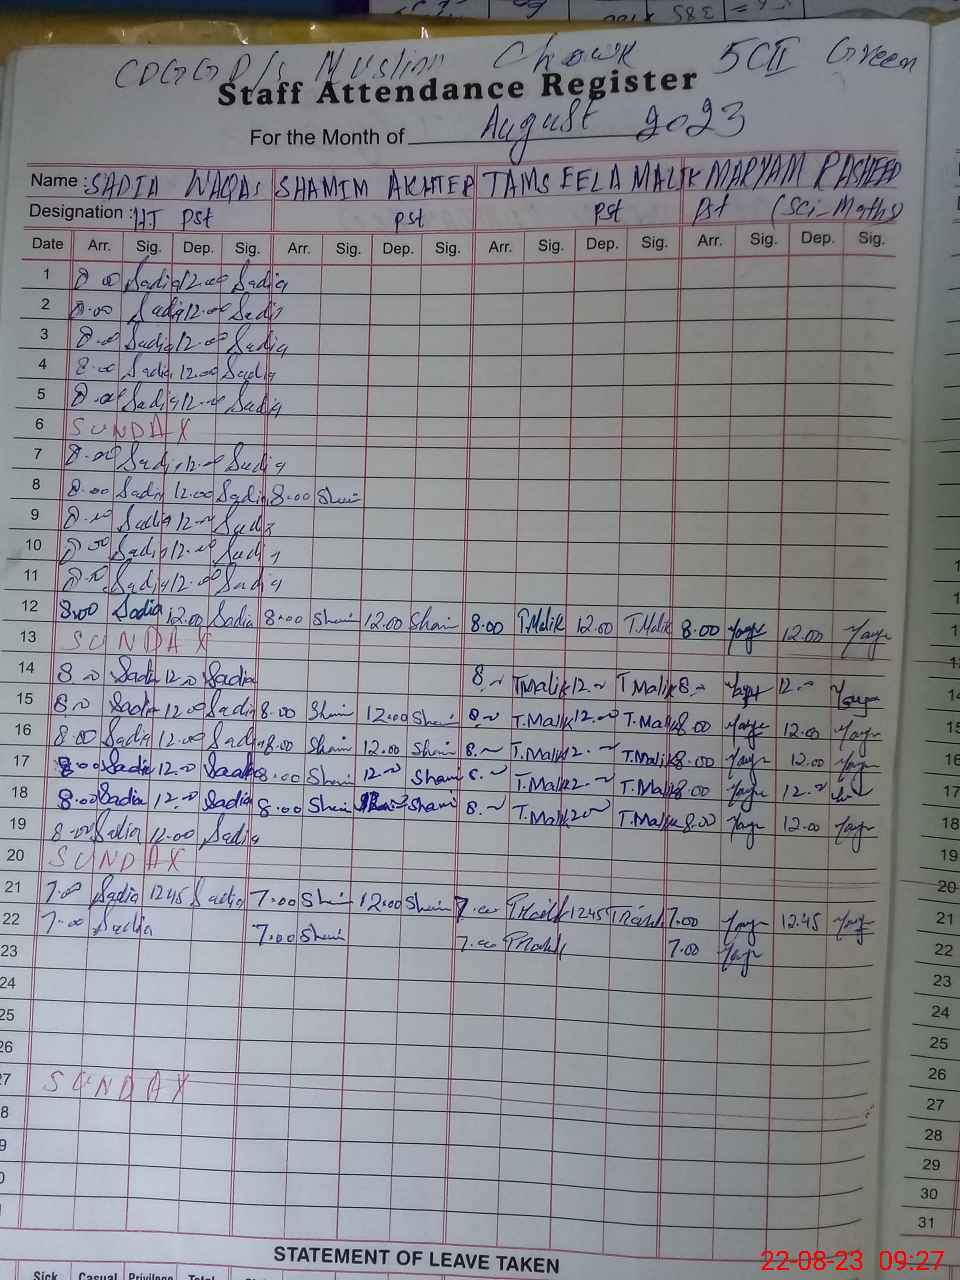 CDGG P/s Muslim Chowk 5CII Green
Staff Attendance Register
For the Month of August 2023
Name : SADIA WAQAS SHAMIM AKHTER TAMSEELA MALIK MARYAM RASHEED
Designation : HT pst pst pst pst (Sci-Maths)
Date Arr. Sig. Dep. Sig. Arr. Sig. Dep. Sig. Arr. Sig. Dep. Sig. Arr. Sig. Dep. Sig.
1 8.00 Sadia 12.00 Sadia
2 8.00 Sadia 12.00 Sadia
3 8.00 Sadia 12.00 Sadia
4 8.00 Sadia 12.00 Sadia
5 8.00 Sadia 12.00 Sadia
6 SUNDAY
7 8.00 Sadia 12.00 Sadia
8 8.00 Sadia 12.00 Sadia 8.00
9 8.00 Sadia 12.00 Sadia
10 8.00 Sadia 12.00 Sadia
11 8.00 Sadia 12.00 Sadia
12 8.00 Sadia 12.00 Sadia 8.00 12.00 8.00 T.Malik 12.00 T.Malik 8.00 12.00
13 SUNDAY
14 8.00 Sadia 12.00 Sadia 8.00 T.Malik 12.00 T.Malik 8.00 12.00
15 8.00 Sadia 12.00 Sadia 8.00 12.00 8.00 T.Malik 12.00 T.Malik 8.00 12.00
16 8.00 Sadia 12.00 Sadia 8.00 12.00 8.00 T.Malik 12.00 T.Malik 8.00 12.00
17 8.00 Sadia 12.00 Sadia 8.00 12.00 8.00 T.Malik 12.00 T.Malik 8.00 12.00
18 8.00 Sadia 12.00 Sadia 8.00 8.00 T.Malik 12.00 T.Malik 8.00 12.00
19 8.00 Sadia 12.00 Sadia
20 SUNDAY
21 7.00 Sadia 1245 Sadia 7.00 12.00 7.00 1245 7.00 12.45
22 7.00 Sadia 7.00 7.00 7.00
23
24
25
26
27 SUNDAY
28
29
30
31
STATEMENT OF LEAVE TAKEN
Sick Casual Privilege Total
22-08-23 09:27